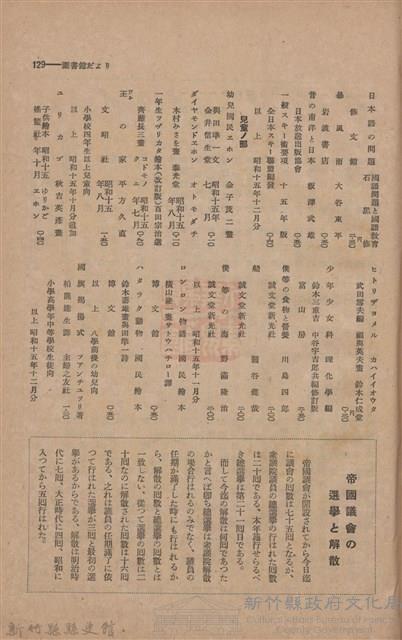 129——圖書館だより
日本語の問題 國語問題と國語教育
石黒修
修文館
暴風雨 大谷東平
岩波書店
昔の南洋と日本 板澤武雄
日本放送出版協會
一般スキー術要項 十五年版
全日本スキー聯盟編發
以上 昭和十五年十二月分
兒童ノ部
幼兒國民エホン 金子茂二畫
與田準一文 昭和十五年
金井信生堂 七月
ダイヤモンドエホン オトモダチ
木村みさを畫 昭和十五
春光堂 年八月
一年生ヲブリカタ繪本(改訂版)百田宗治選
コドモノ 昭和十五
齊藤長三畫 クニ 年七月
王の家 平方久直
文昭社 昭和十五年八月
小學校四年生以上兒童向
以上 昭和十五年十月分追加
ユリカゴ 秋吉英彦畫
子供繪本 昭和十五 ゆりかご
聯盟社 年十月 エホン
ヒトリデヨメル カハイイオウタ
武田 編 鈴木仁成堂
少年少女科理化學編
鈴木三重吉 中谷宇吉郎共編修訂版
冨山房
僕等の食物と營養 川島四郎
誠文堂新光社
船
誠文堂新光社
僕等の海野 隆治
誠文堂新光社
以上 昭和十五年十一月分
ロンロン物語 國民繪本
横山隆一畫 サトウハチロー譯
博文館
ハタラク動物 國民繪本
鈴木壽雄畫 與田準一詩
博文館
以上 八學前後の幼兒向
國旗揭揚式 フアンチユリ著
柏熊達生譯 主婦之友社
小學高學年中等學校生徒向
以上昭和十五年十二月分
帝國議會の
選擧と解散
帝國議會が開設されてから今日迄
に議會の回數は七十五回となるが、
衆議院議員の總選擧の行はれた回數
は二十回である。本年施行せらるべ
き總選擧は第二十一回目である。
而して今迄の解散は何回であつた
かと言へば卽ち總選擧は衆議院解散
の場合行はれるのみでなく、議員の
任期が滿了した時にも行はれるか
ら、解散の回數と總選擧の回數とは
一致しない。從つて選擧の回數は二
十回なのに解散された回數は十六回
である。之れは議員の任期滿了に依
つて行はれた選擧が三回と最初の選
擧があるからである。解散は明治時
代に七回、大正時代に四回、昭和に
入つてから五回行はれた。
新竹縣縣史館
新竹縣政府文化局
Cultural Affairs Bureau of Hsinchu County Government